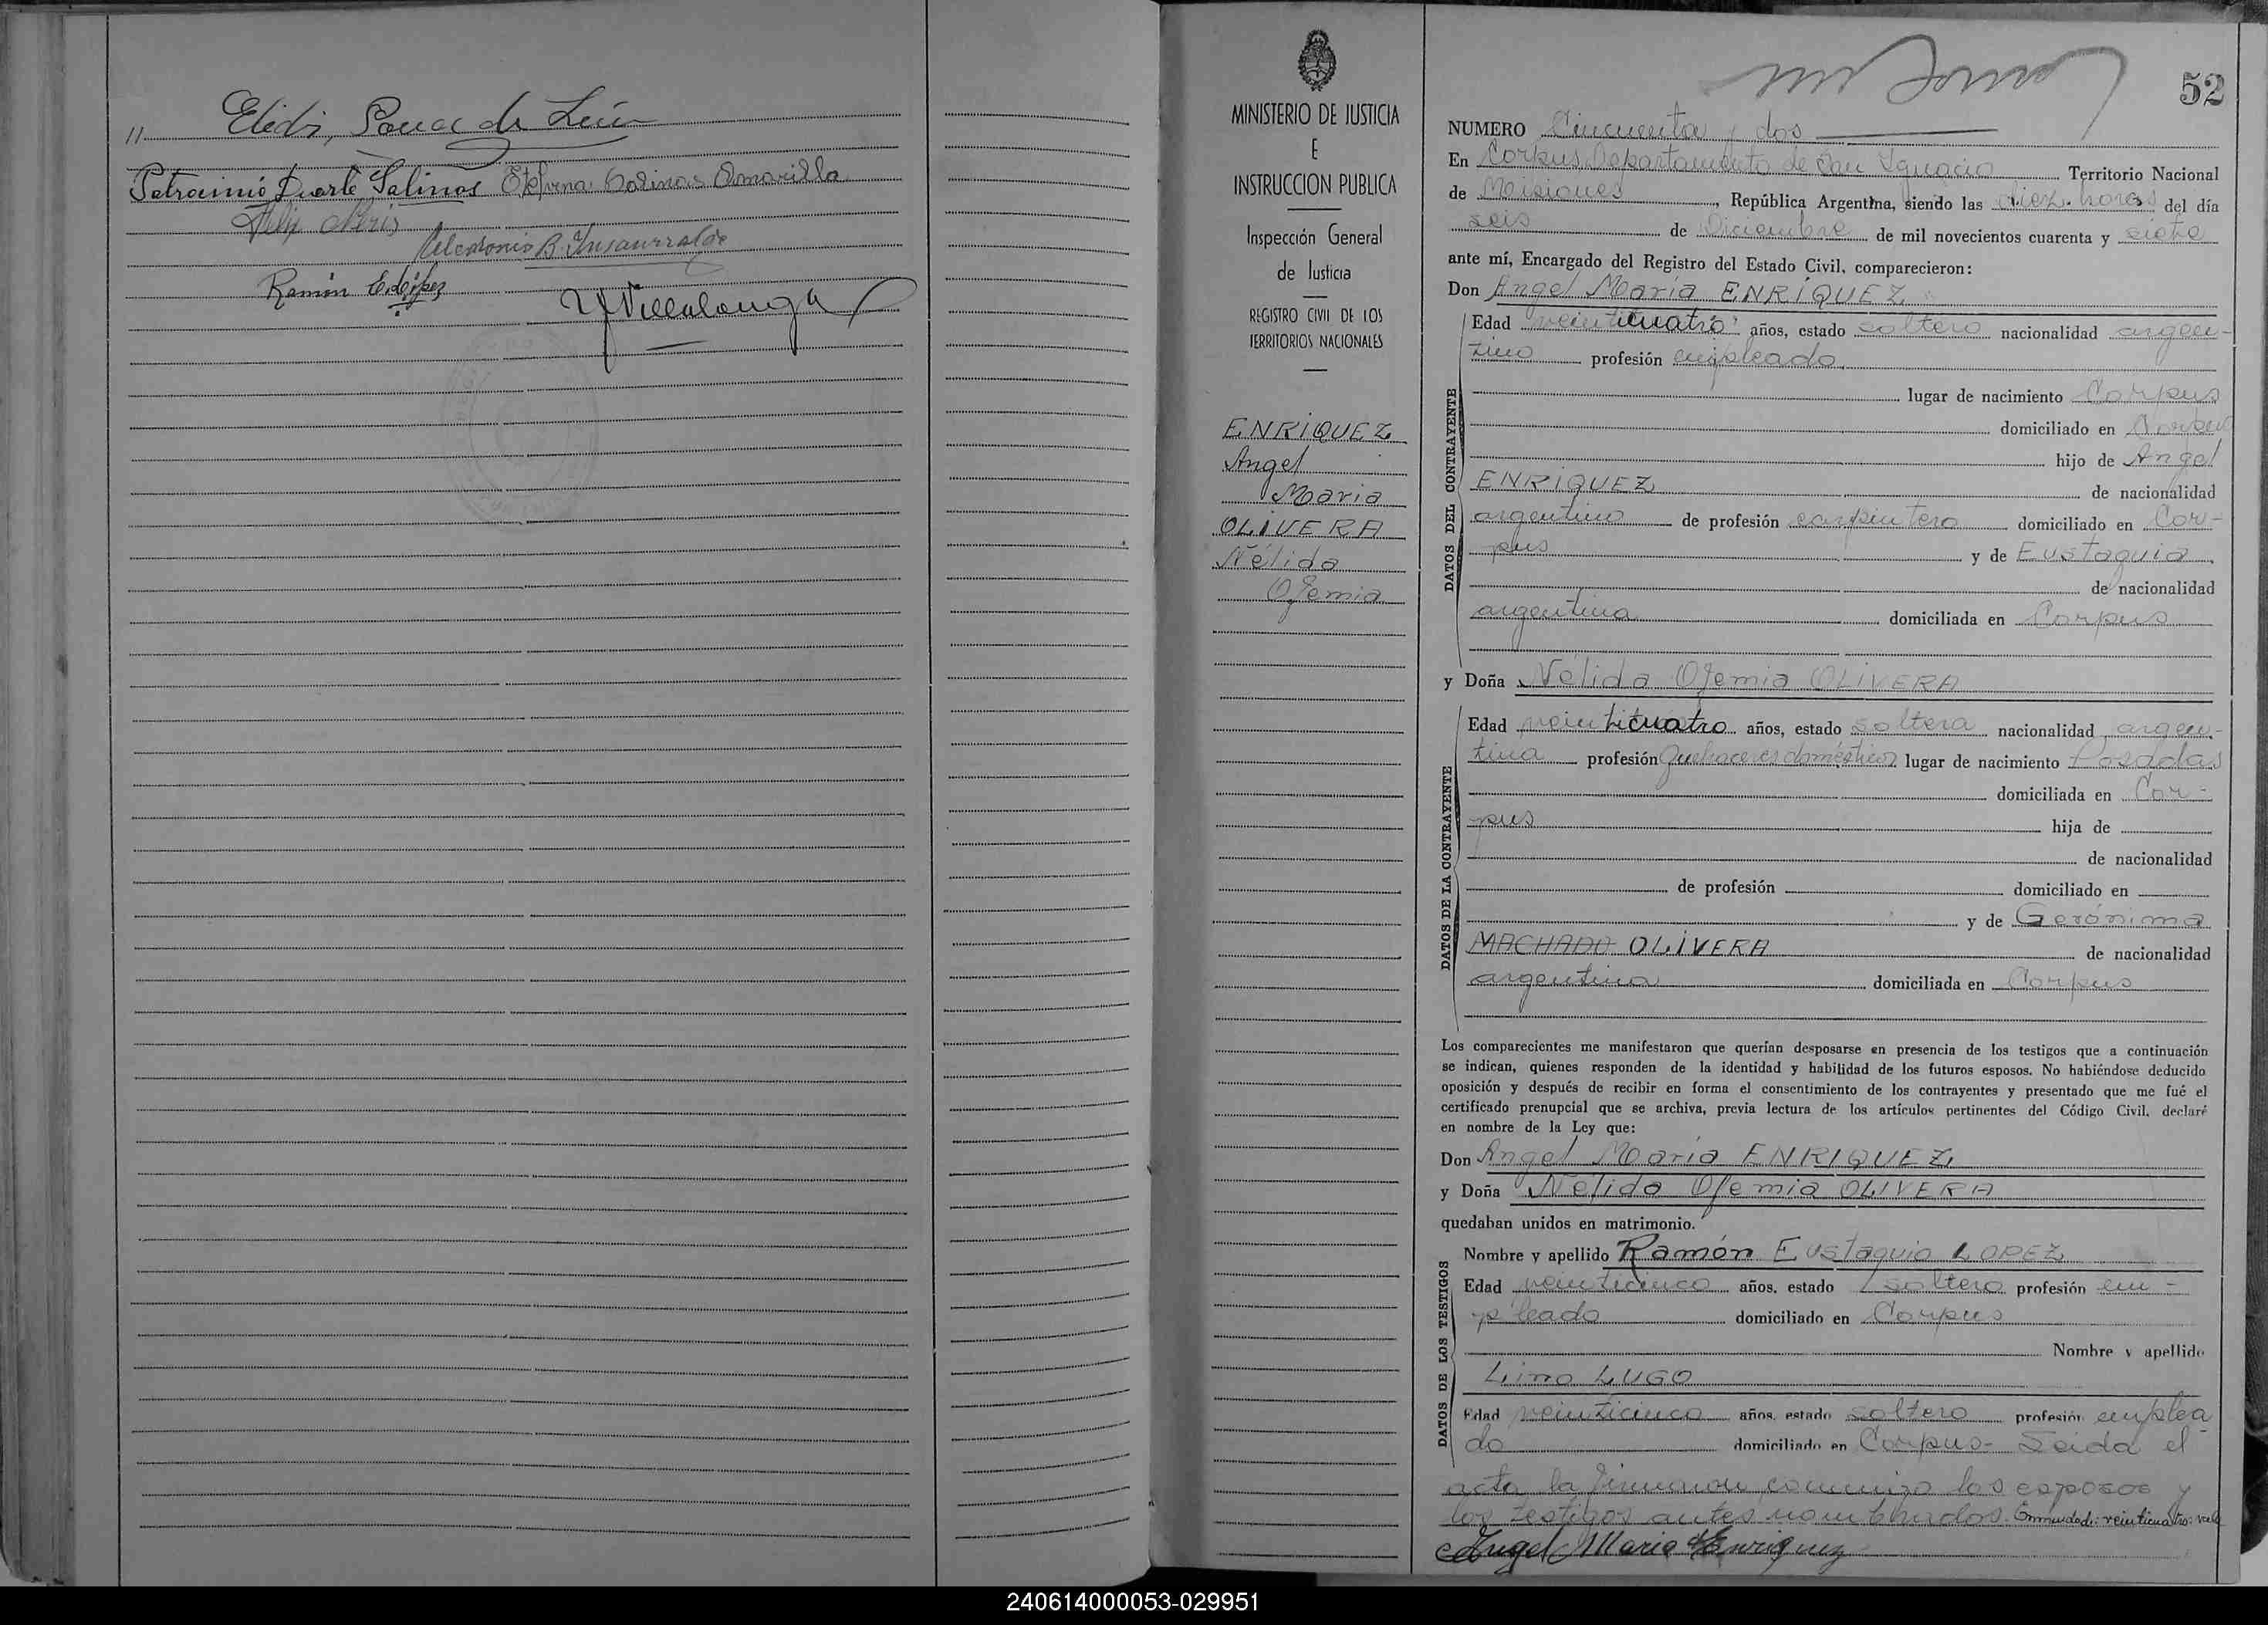 11
Patrocinio Duarte Salinas
Ramón E. López
Villalonga
MINISTERIO DE JUSTICIA
E
INSTRUCCION PUBLICA
Inspección General
de Justicia
REGISTRO CIVIL DE LOS
TERRITORIOS NACIONALES
ENRIQUEZ
Angel
Maria
OLIVERA
Nélida
Ofemia
52
NUMERO Cincuenta y dos
En Corpus, Departamento de San Ignacio Territorio Nacional
de Misiones, República Argentina, siendo las diez horas del día
seis de Diciembre de mil novecientos cuarenta y siete
ante mí, Encargado del Registro del Estado Civil, comparecieron:
Don Angel Maria ENRIQUEZ
DATOS DEL CONTRAYENTE
Edad veinticuatro años, estado soltero nacionalidad argen-
tino profesión empleado
lugar de nacimiento Corpus
domiciliado en Corpus
hijo de Angel
ENRIQUEZ de nacionalidad
argentino de profesión carpintero domiciliado en Cor-
pus y de Eustaquia
de nacionalidad
argentina domiciliada en Corpus
y Doña Nélida Ofemia OLIVERA
DATOS DE LA CONTRAYENTE
Edad veinticuatro años, estado soltera nacionalidad argen-
tina profesión Quehaceres domésticos lugar de nacimiento Posadas
domiciliada en Cor-
pus hija de
de nacionalidad
de profesión domiciliado en
y de Gerónima
MACHADO OLIVERA de nacionalidad
argentina domiciliada en Corpus
Los comparecientes me manifestaron que querían desposarse en presencia de los testigos que a continuación
se indican, quienes responden de la identidad y habilidad de los futuros esposos. No habiéndose deducido
oposición y después de recibir en forma el consentimiento de los contrayentes y presentado que me fué el
certificado prenupcial que se archiva, previa lectura de los artículos pertinentes del Código Civil, declaré
en nombre de la Ley que:
Don Angel Maria ENRIQUEZ
y Doña Nélida Ofemia OLIVERA
quedaban unidos en matrimonio.
DATOS DE LOS TESTIGOS
Nombre y apellido Ramón Eustaquio LOPEZ
Edad veinticinco años, estado soltero profesión em-
pleado domiciliado en Corpus
Nombre y apellido
Lino LUGO
Edad veinticinco años, estado soltero profesión emplea
do domiciliado en Corpus- Leida el
acta la firmaron conmigo los esposos y
los testigos antes nombrados. Enmendado: veinticuatro: vale
Angel Maria Enriquez
240614000053-029951